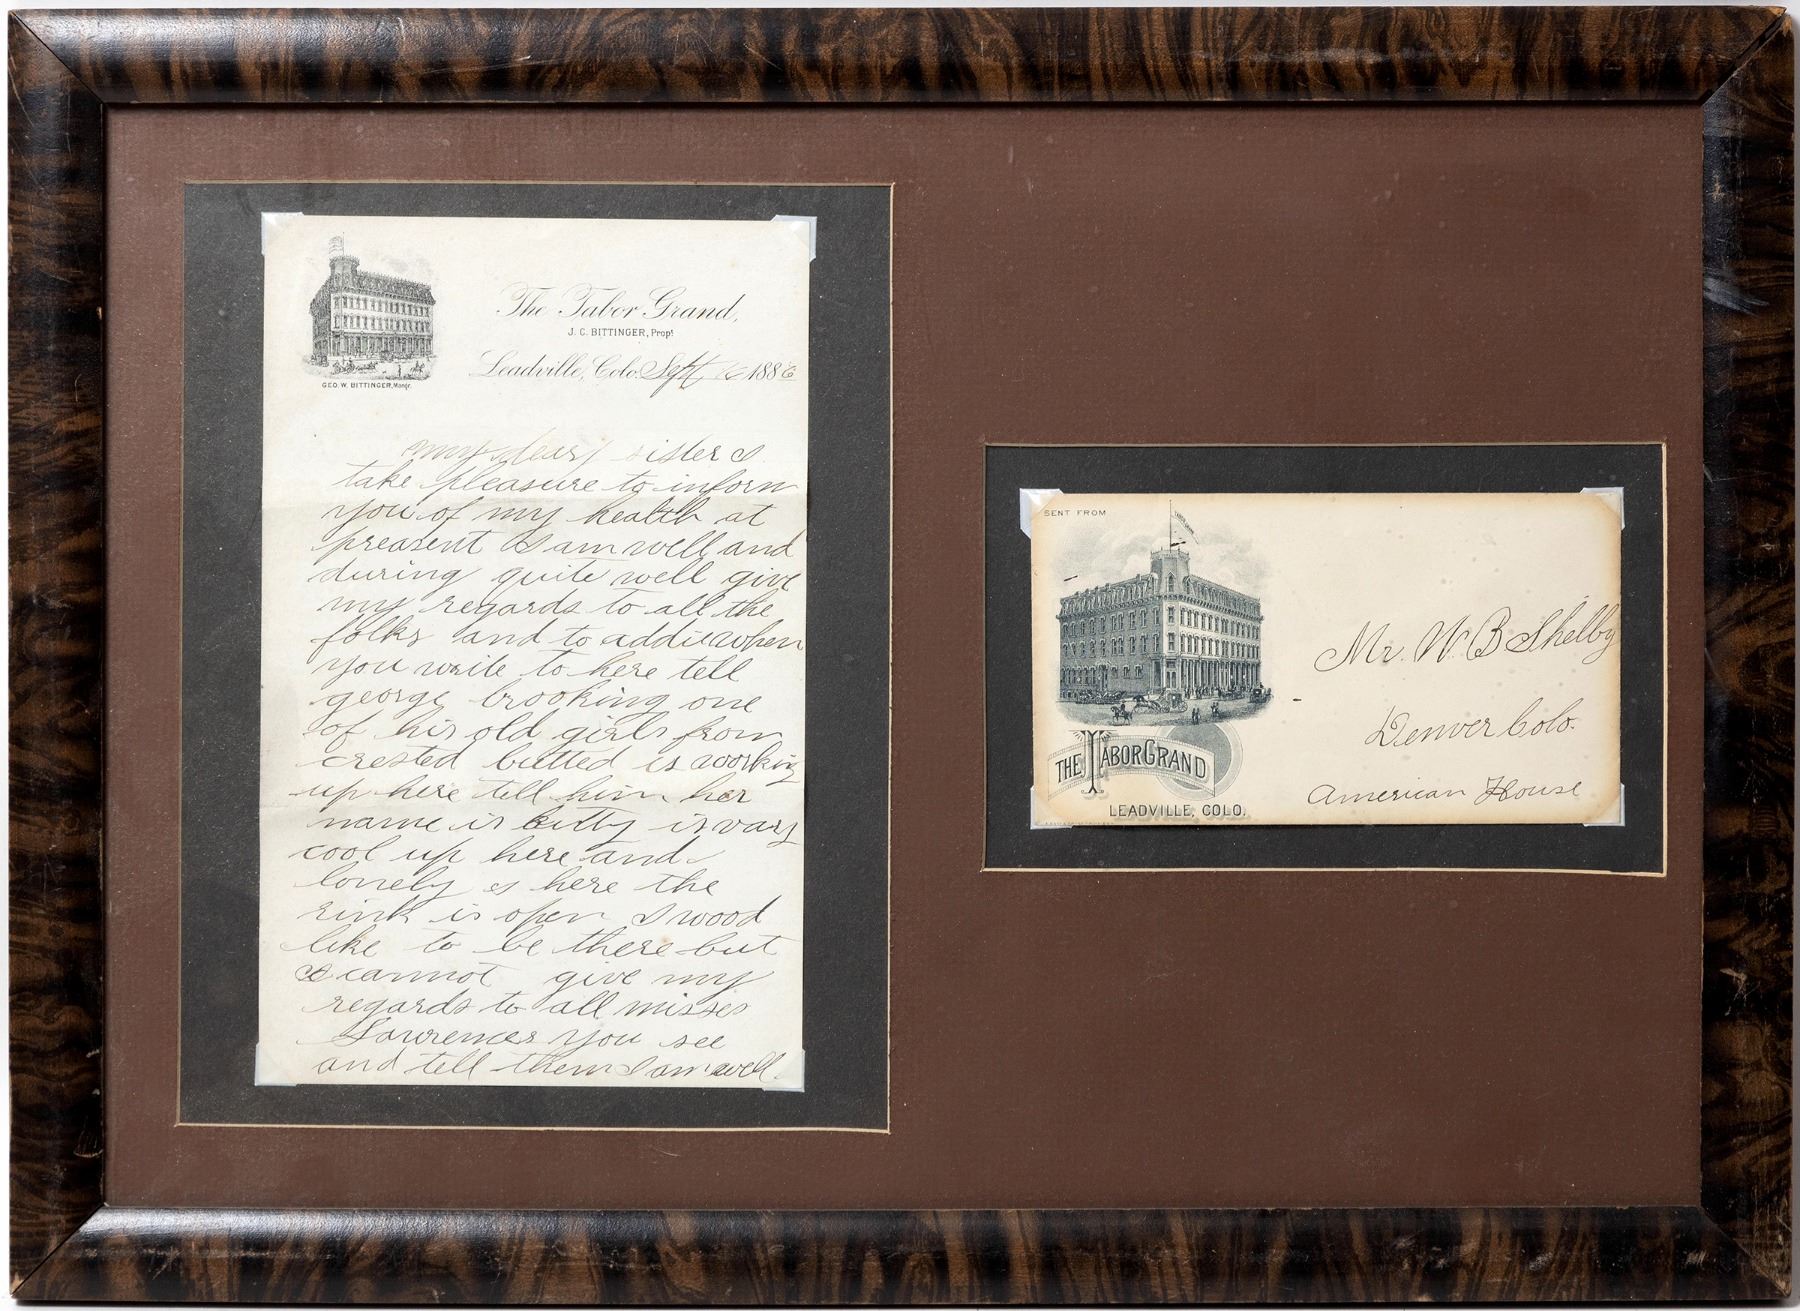 The Tabor Grand,
J. C. BITTINGER, Propt
GEO. W. BITTINGER, Mangr.
Leadville, Colo. Sept 16 1886
my dear sister I
take pleasure to inform
you of my health at
preasent I am well and
during quite well give
my regards to all the
folks and to addie when
you write to here tell
george brooking one
of his old girls from
crested butted is working
up here tell him her
name is Kitty is vary
cool up here and
lonely is here the
rink is open I wood
like to be there but
I cannot give my
regards to all misses
Lawrences you see
and tell them I am well.
SENT FROM
TABOR GRAND
THE TABOR GRAND
LEADVILLE, COLO.
Mr. W. B Shelby
Denver Colo.
American House